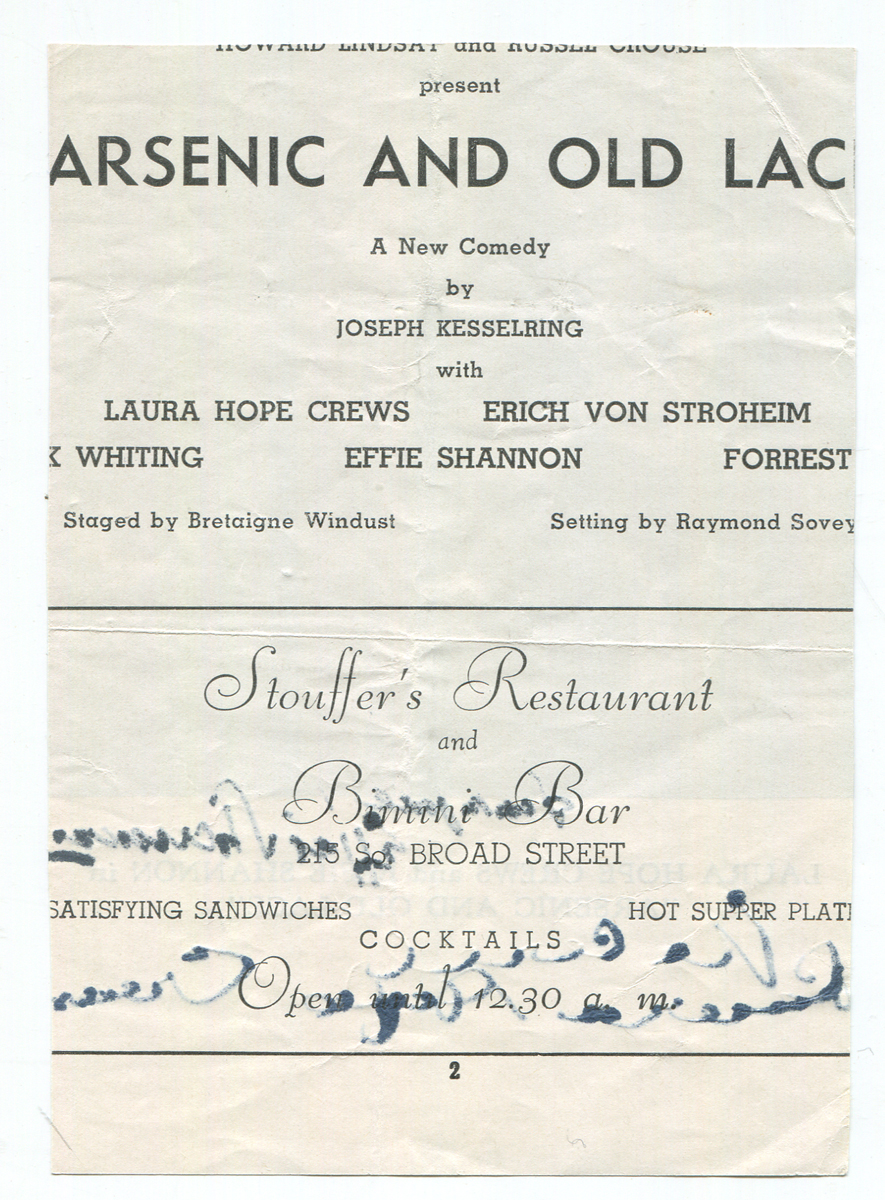 HOWARD LINDSAY and RUSSEL CROUSE
present
ARSENIC AND OLD LAC
A New Comedy
by
JOSEPH KESSELRING
with
LAURA HOPE CREWS ERICH VON STROHEIM
K WHITING EFFIE SHANNON FORREST
Staged by Bretaigne Windust Setting by Raymond Sovey
Stouffer's Restaurant
and
Bimini Bar
215 So. BROAD STREET
SATISFYING SANDWICHES HOT SUPPER PLAT
COCKTAILS
Open until 12.30 a. m.
2